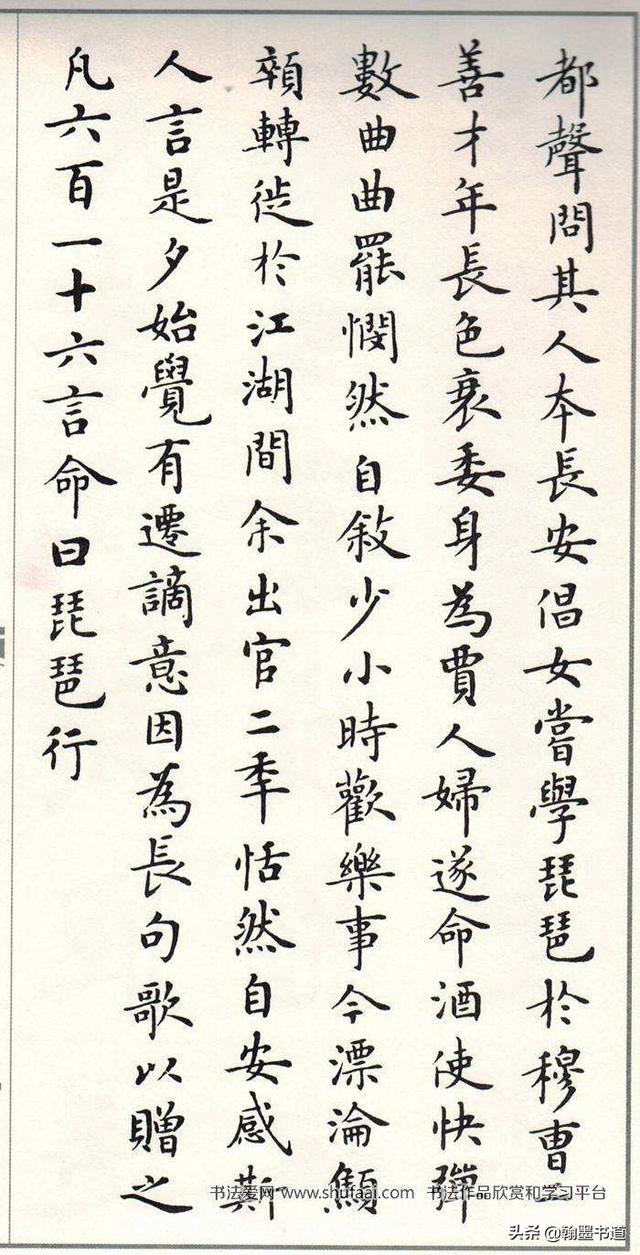 都聲問其人本長安倡女嘗學琵琶於穆曹二
善才年長色衰委身為賈人婦遂命酒使快彈
數曲曲罷憫然自敘少小時歡樂事今漂淪顦
顇轉徙於江湖間余出官二秊恬然自安感斯
人言是夕始覺有遷謫意因為長句歌以贈之
凡六百一十六言命曰琵琶行
书法爱网 www.shufaai.com 书法作品欣赏和学习平台
头条 @翰墨书道